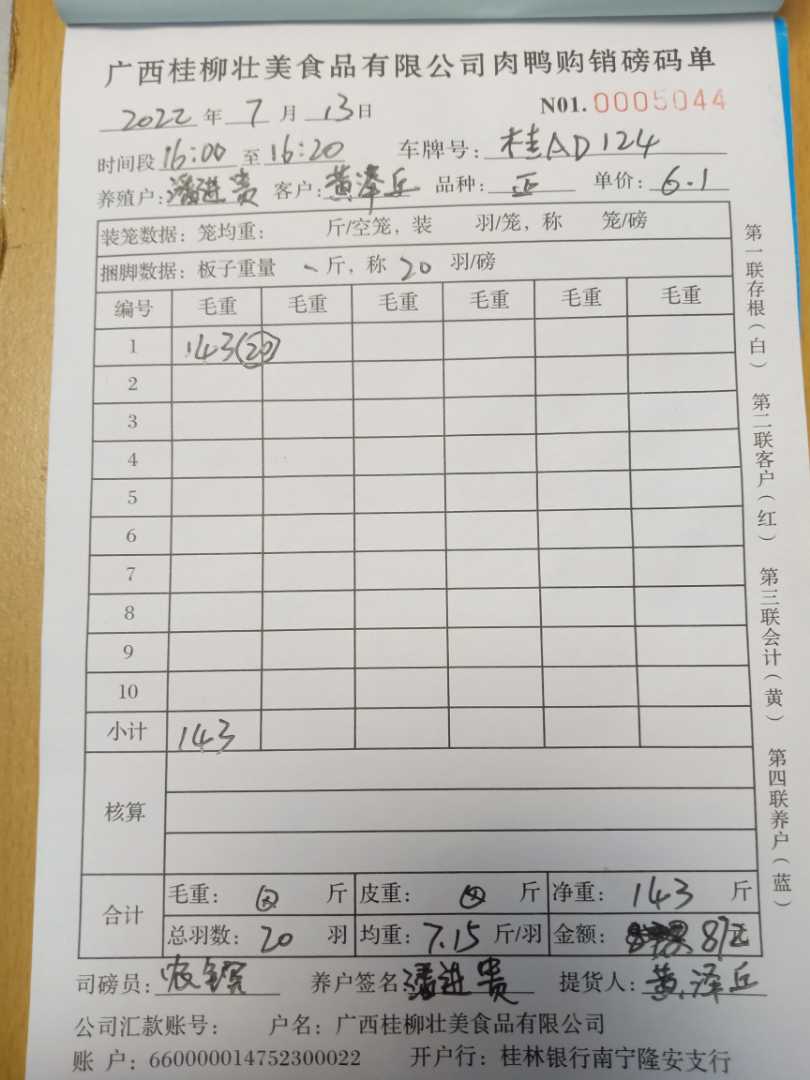 广西桂柳壮美食品有限公司肉鸭购销磅码单
2022年7月13日 N01.0005044
时间段16:00至16:20 车牌号:桂AD124
养殖户:潘进贵 客户:黄泽丘 品种:正 单价:6.1
装笼数据:笼均重: 斤/空笼,装 羽/笼,称 笼/磅
捆脚数据:板子重量 斤,称20羽/磅
编号 毛重 毛重 毛重 毛重 毛重 毛重
1 143(20)
2
3
4
5
6
7
8
9
10
小计 143
核算
合计 毛重: 斤 皮重: 斤 净重:143斤
总羽数:20羽 均重:7.15斤/羽 金额: 872元
司磅员: 养户签名:潘进贵 提货人:黄泽丘
公司汇款账号: 户名:广西桂柳壮美食品有限公司
账 户:660000014752300022 开户行:桂林银行南宁隆安支行
第一联存根(白) 第二联客户(红) 第三联会计(黄) 第四联养户(蓝)